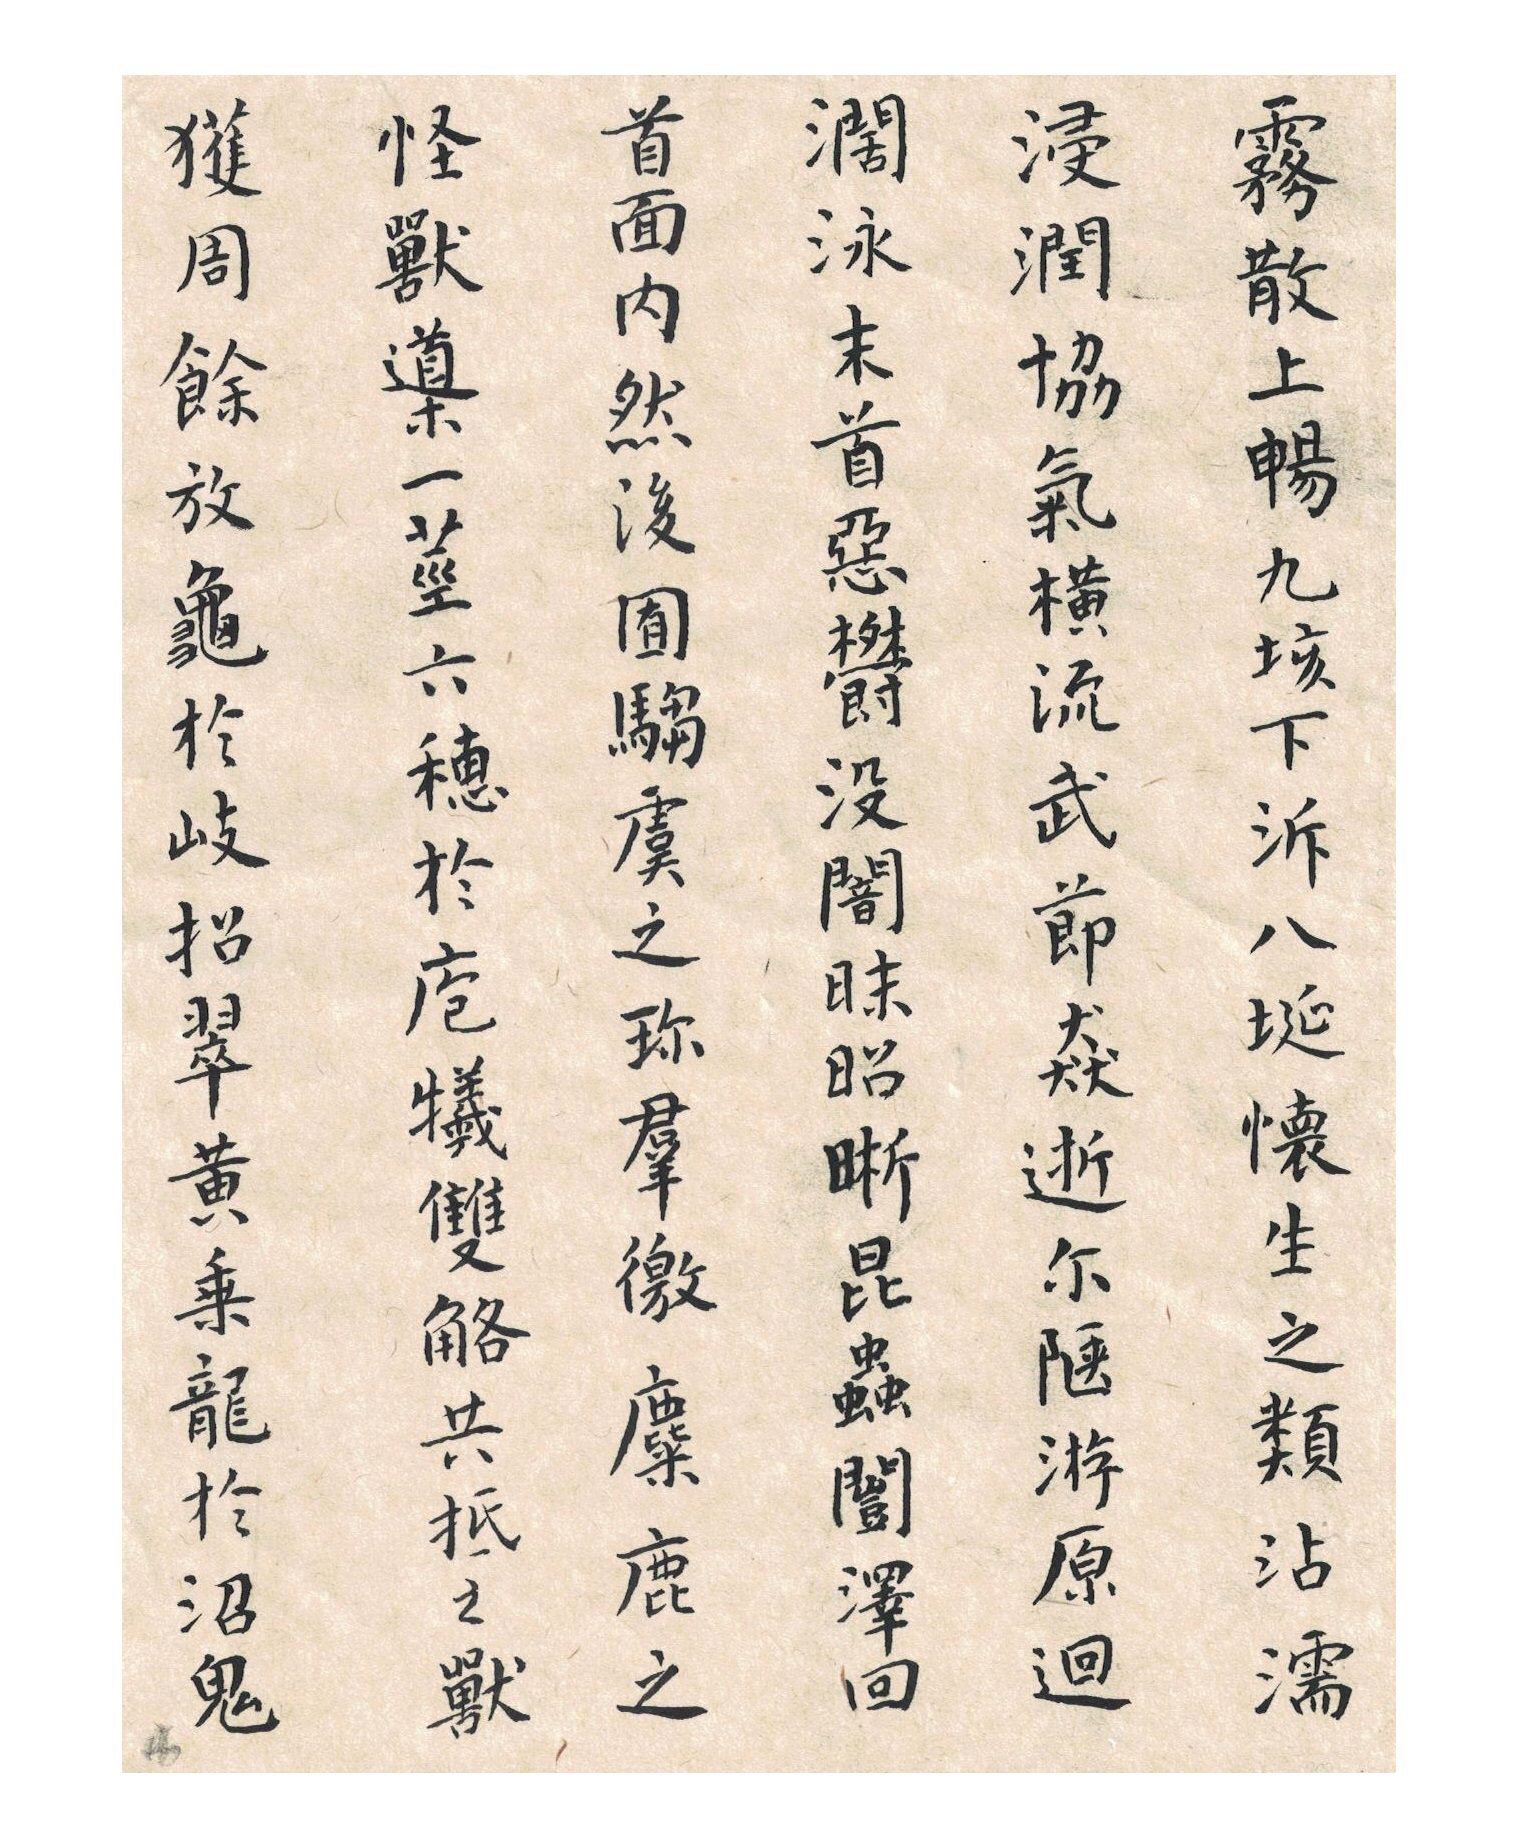 霧散上暢九垓下泝八埏懷生之類沾濡
浸潤協氣橫流武節猋逝尓陿游原迥
濶泳末首惡欎没闇昧昭晰昆蟲闓澤回
首面内然後囿騶虞之珎羣徼麋鹿之
怪獸䆃一莖六穗於庖犧雙觡共抵之獸
獲周餘放龜於岐招翠黄乗龍於沼鬼